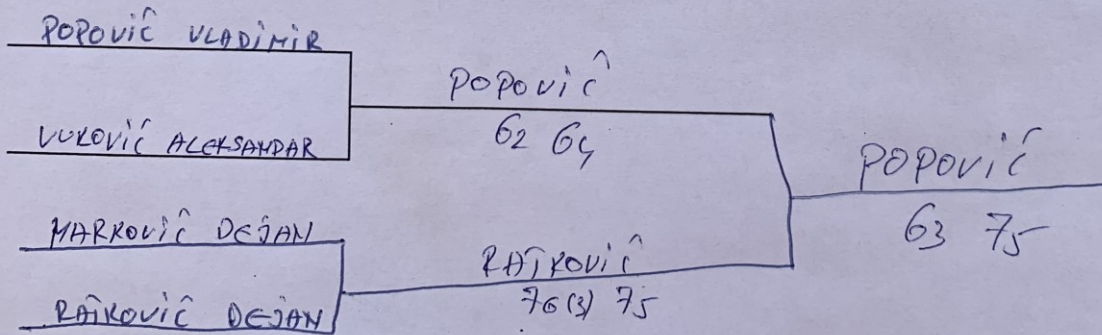 POPOVIĆ VLADIMIR
VUKOVIĆ ALEKSANDAR
MARKOVIĆ DEJAN
RAJKOVIĆ DEJAN
POPOVIĆ
62 64
RAJKOVIĆ
76(3) 75
POPOVIĆ
63 75